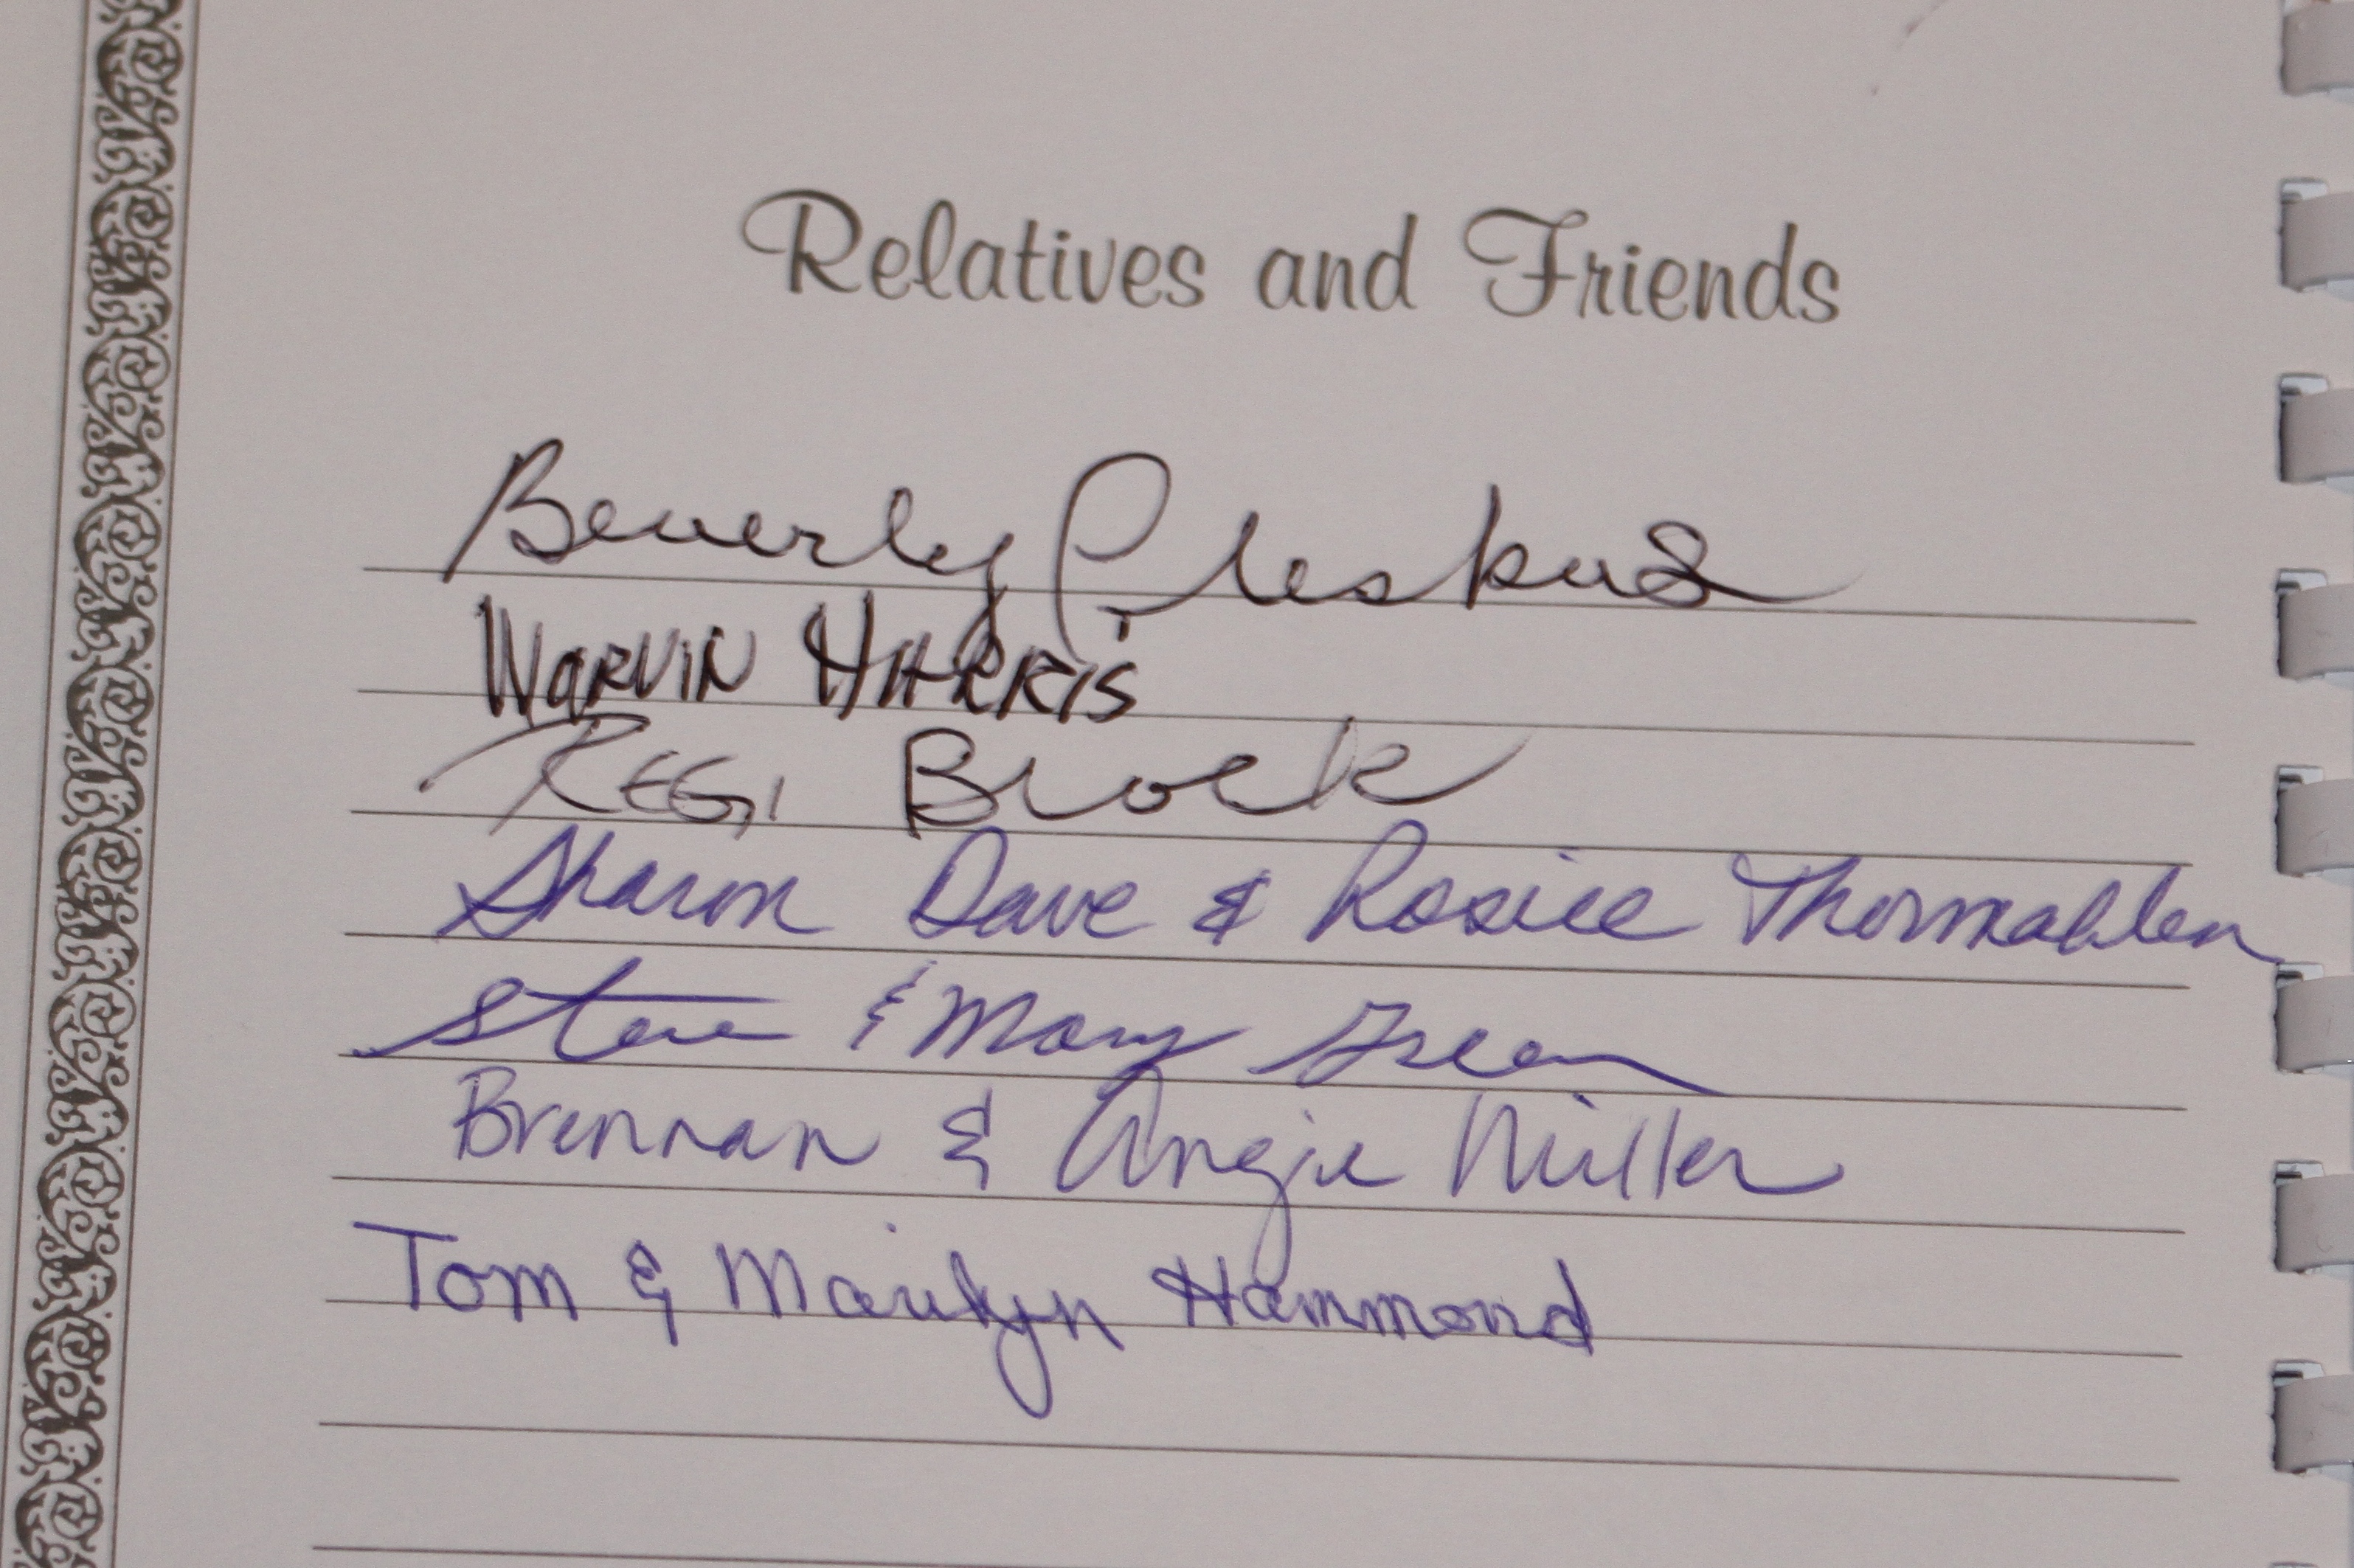 Relatives and Friends
Beverly Pleskus
WARVIN HARRIS
REGI Brock
Sharon Dave & Rosiee Thormahlen
Steve & Mary Green
Brennan & Angie Miller
Tom & Marilyn Hammond